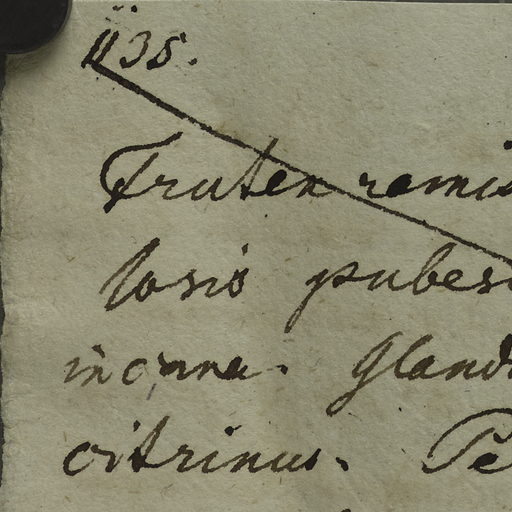 1135.
Frutex ramis
losis pubes
incana. Gland
citrinus. Pe